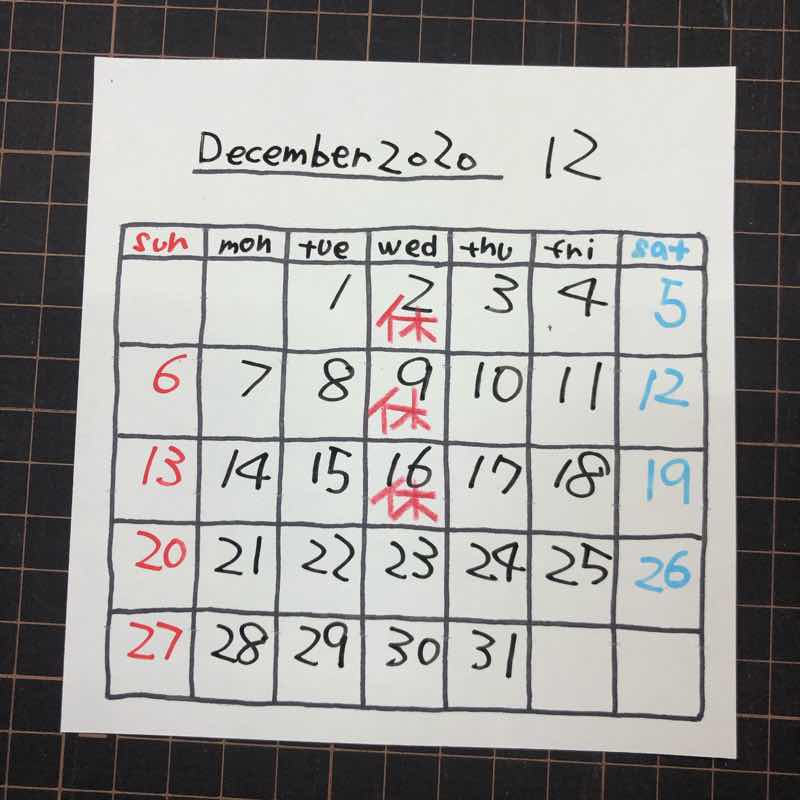 December 2020 12
sun mon tue wed thu fri sat
1 2 3 4 5
休
6 7 8 9 10 11 12
休
13 14 15 16 17 18 19
休
20 21 22 23 24 25 26
27 28 29 30 31